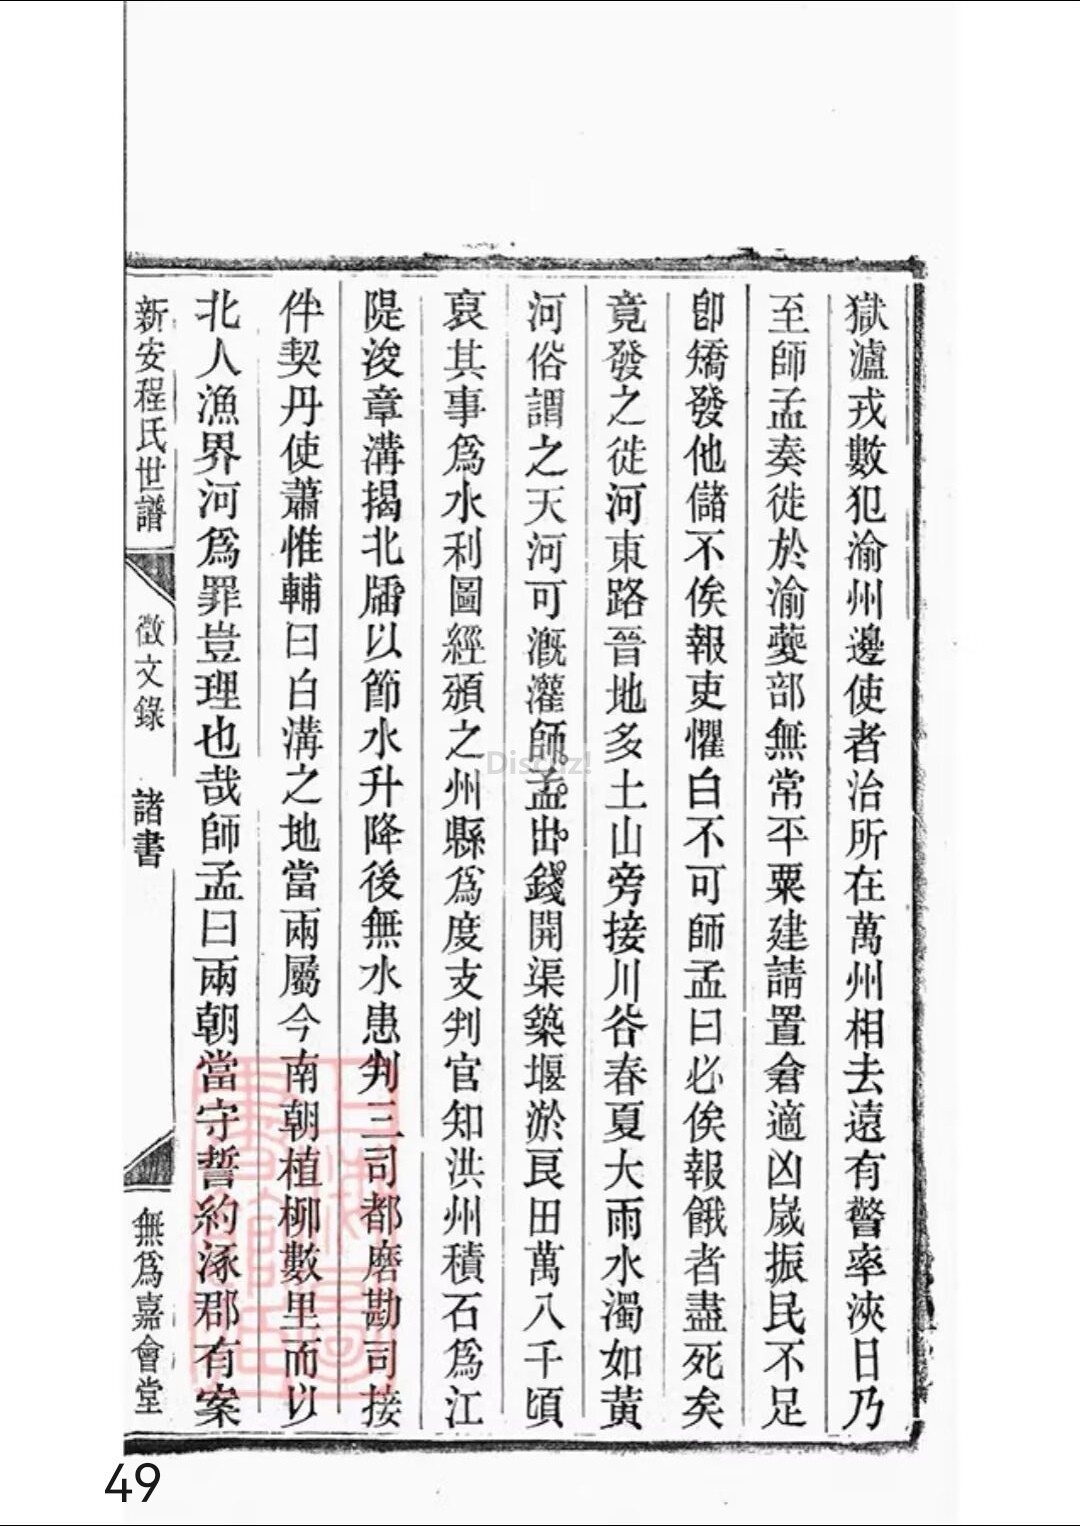 獄瀘戎數犯渝州邊使者治所在萬州相去遠有警率浹日乃
至師孟奏徙於渝夔部無常平粟建請置倉適凶嵗振民不足
卽矯發他儲不俟報吏懼白不可師孟曰必俟報餓者盡死矣
竟發之徙河東路晉地多土山旁接川谷春夏大雨水濁如黃
河俗謂之天河可漑灌師孟出錢開渠築堰淤良田萬八千頃
裒其事爲水利圖經頒之州縣爲度支判官知洪州積石爲江
隄浚章溝揭北牐以節水升降後無水患判三司都磨勘司接
伴契丹使蕭惟輔曰白溝之地當兩屬今南朝植柳數里而以
北人漁界河爲罪豈理也哉師孟曰兩朝當守誓約涿郡有案
新安程氏世譜 徵文錄 諸書 無爲嘉會堂
Discuz!
49